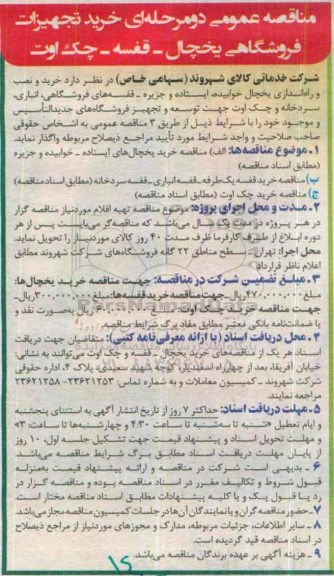 مناقصه عمومی دومرحله‌ای خرید تجهیزات
فروشگاهی یخچال ـ قفسه ـ چک اوت
شرکت خدماتی کالای شهروند (سهامی خاص) در نظر دارد خرید و نصب
و راه‌اندازی یخچال خوابیده، ایستاده و جزیره ـ قفسه‌های فروشگاهی، انباری،
سردخانه و چک اوت جهت توسعه و تجهیز فروشگاه‌های جدیدالتأسیس
و موجود خود را با شرایط ذیل از طریق ۳ مناقصه عمومی به اشخاص حقوقی
صاحب صلاحیت و واجد شرایط مورد تأیید مراجع ذیصلاح برگزار واگذار نماید.
۱ـ موضوع مناقصه‌ها: الف) مناقصه خرید یخچال‌های ایستاده ـ خوابیده و جزیره
(مطابق اسناد مناقصه)
ب) مناقصه خرید قفسه یک‌طرفه ـ قفسه انباری ـ قفسه سردخانه (مطابق اسناد مناقصه)
ج) مناقصه خرید چک اوت (مطابق اسناد مناقصه)
۲ـ مدت و محل اجرای پروژه: موضوع مناقصه تهیه اقلام موردنیاز مناقصه گزار
در هر پروژه در مدت سال می‌باشد که مناقصه‌گر می‌بایست پس از هر
دوره ابلاغ از طرف کارفرما ظرف مدت ۴۰ روز کالای موردنیاز را تحویل نماید.
محل اجرا: تهران ـ سطح مناطق ۲۲ گانه فروشگاه‌های شرکت شهروند مطابق
اعلام ناظر قرارداد
۳ـ مبلغ تضمین شرکت در مناقصه: جهت مناقصه خرید یخچال‌ها:
مبلغ ریال ـ جهت مناقصه خرید قفسه‌ها: مبلغ ریال ـ
جهت مناقصه خرید چک اوت: مبلغ ریال به‌صورت نقد و
یا ضمانت‌نامه بانکی معتبر مطابق مفاد برگ شرایط مناقصه.
۴ـ محل دریافت اسناد (با ارائه معرفی‌نامه کتبی): متقاضیان جهت دریافت
اسناد هر یک از مناقصه‌های خرید یخچال ـ قفسه و چک اوت می‌توانند به نشانی:
خیابان آفریقا، بعد از چهارراه اسفندیار، کوچه شهید سعیدی، پلاک ۴، اداره حقوقی
شرکت شهروند ـ کمیسیون معاملات و به شماره تماس: ۲۳۶۲۱۲۵۳ـ ۲۳۶۲۱۲۵۸
مراجعه نمایند.
۵ـ مهلت دریافت اسناد: حداکثر ۷ روز از تاریخ انتشار آگهی به استثنای پنجشنبه
و ایام تعطیل (شنبه تا سه‌شنبه تا ساعت ۴:۳۰ و چهارشنبه‌ها تا ساعت: ۳)
و مهلت تحویل اسناد و پیشنهاد قیمت جهت تشکیل جلسه اول، ۱۰ روز
از پایان مهلت دریافت اسناد مطابق برگ شرایط مناقصه می‌باشد.
۶ـ بدیهی است شرکت در مناقصه و ارائه پیشنهاد قیمت به‌منزله
قبول شروط و تکالیف مقرر در اسناد مناقصه بوده و مناقصه گزار در
رد یا قبول یک و یا کلیه پیشنهادات مطابق اسناد مناقصه مختار است.
۷ـ حضور مناقصه گران و یا نمایندگان آن‌ها در جلسات کمیسیون مناقصه مجاز می‌باشد.
۸ـ سایر اطلاعات، جزئیات مربوطه، مدارک و مجوزهای موردنیاز از مراجع ذیصلاح
در اسناد مناقصه قید گردیده است.
۹ـ هزینه آگهی بر عهده برندگان مناقصه می‌باشد.